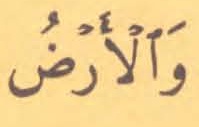 وَٱلۡأَرۡضُ